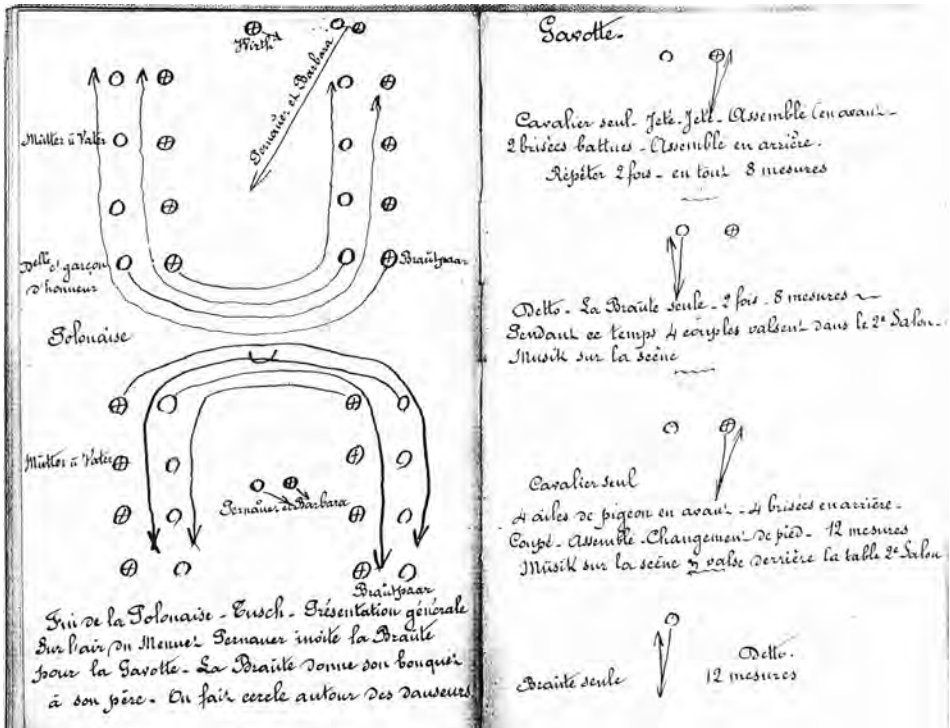 Wirth
Pernauer et Barbara
Mutter ü Vater
Delle et garçon
d'honneur
Braütpaar
Polonaise
Mutter ü Vater
Pernauer et Barbara
Braütpaar
Fin de la Polonaise - Tusch - Présentation générale
Sur l'air du Menuet Pernauer invite la Braüte
pour la Gavotte - La Braüte donne son bouquet
à son père - On fait cercle autour des danseurs
Gavotte.
Cavalier seul - Jeté - Jeté - Assemblé (en avant -
2 brisées battues - Assemblé en arrière.
Répéter 2 fois - en tout 8 mesures
Detto - La Braüte seule - 2 fois - 8 mesures
Pendant ce temps 4 couples valsent dans le 2e Salon -
Musik sur la scène
Cavalier seul
4 ailes de pigeon en avant - 4 brisées en arrière -
Coupé - Assemblé - Changement de pied - 12 mesures
Müsik sur la scène valse derrière la table 2e Salon
Braüte seule
Detto.
12 mesures